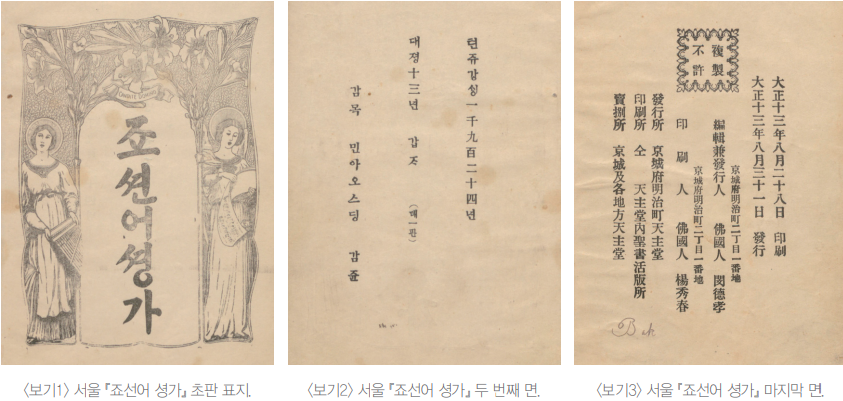 죠션어셩가
텬쥬강성一千九百二十四년
대졍十三년 갑ᄌᆞ (뎨一판)
감목 민아오스딩 감쥰
複製
不許
大正十三年八月二十八日 印刷
大正十三年八月三十一日 發行
京城府明治町二丁目一番地
編輯兼發行人 佛國人 閔德孝
京城府明治町二丁目一番地
印刷人 佛國人 楊秀春
發行所 京城府明治町天主堂
印刷所 仝 天主堂內聖書活版所
賣捌所 京城及各地方天主堂
〈보기1〉 서울 『죠선어 셩가』 초판 표지.
〈보기2〉 서울 『죠선어 셩가』 두 번째 면.
〈보기3〉 서울 『죠선어 셩가』 마지막 면.